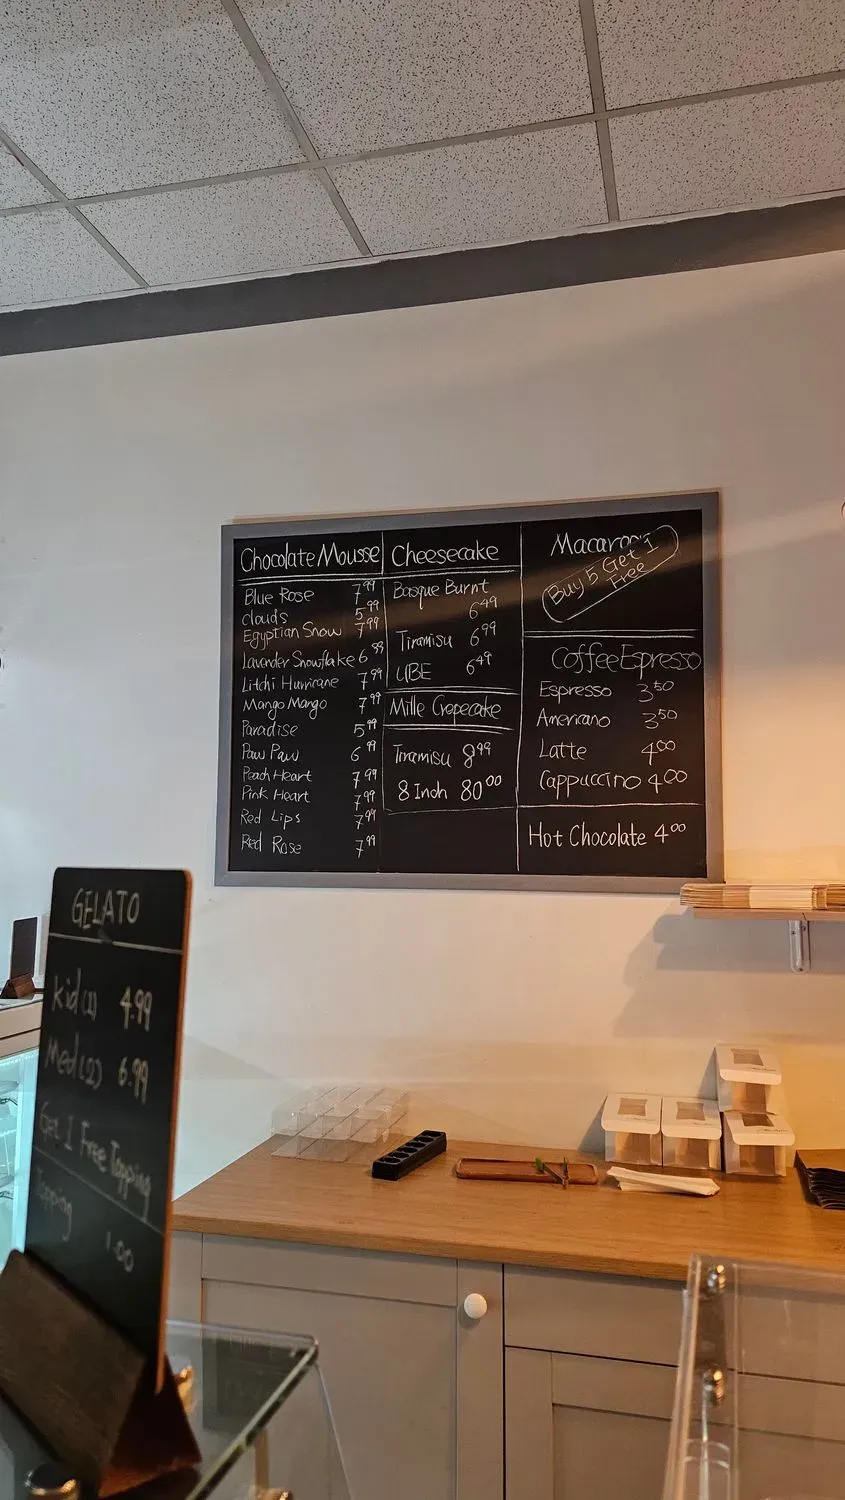 Chocolate Mousse
Blue Rose 7.99
Clouds 5.99
Egyptian Snow 7.99
Lavender Snowflake 6.99
Litchi Hurricane 7.99
Mango Mango 7.99
Paradise 5.99
Paw Paw 6.99
Peach Heart 7.99
Pink Heart 7.99
Red Lips 7.99
Red Rose 7.99
Cheesecake
Basque Burnt
6.49
Tiramisu 6.99
UBE 6.49
Mille Crepecake
Tiramisu 8.99
8 Inch 80.00
Macaron
Buy 5 Get 1
Free
Coffee Espresso
Espresso 3.50
Americano 3.50
Latte 4.00
Cappuccino 4.00
Hot Chocolate 4.00
GELATO
kid (1) 4.99
Med (2) 6.99
Get 1 Free Topping
Topping
1.00